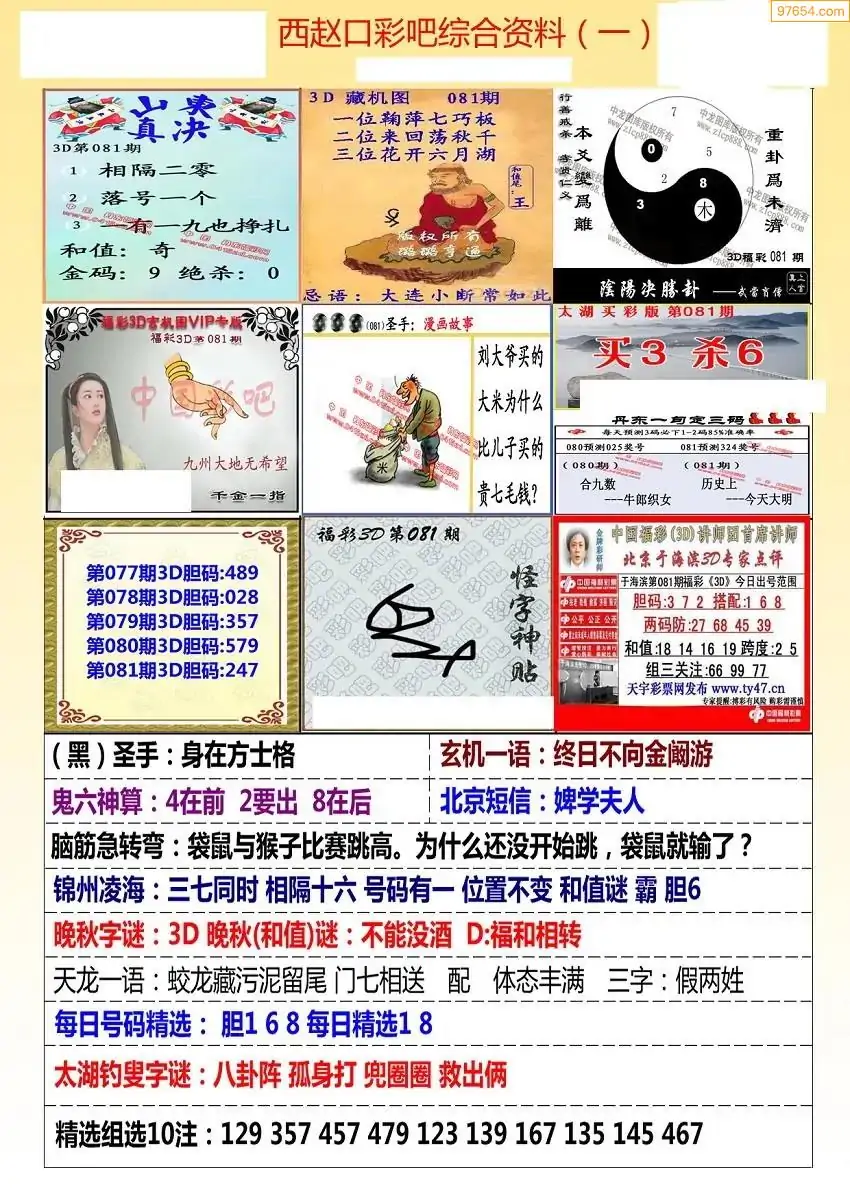 97654.com
西赵口彩吧综合资料（一）
山東
真决
3D第081期
1 相隔二零
2 落号一个
3 一有一九也挣扎
和值：奇
金码：9 绝杀：0
3D 藏机图 081期
一位鞠萍七巧板
二位来回荡秋千
三位花开六月湖
和值尾：
王
版权所有
璐璐亨通
忌语：大连小断常如此
行善戒杀 孝贤仁义
本爻變爲離
中龙图库版权所有
www.zlcp888.com
7
0
5
2
8
3
木
重卦爲未濟
3D福彩 081 期
陰陽決勝卦 ——武當肖僧
福彩3D玄机图VIP专版
福彩3D第081期
中国彩吧
九州大地无希望
千金一指
(081)圣手：漫画故事
米
刘大爷买的
大米为什么
比儿子买的
贵七毛钱?
太湖买彩版 第081期
买3 杀6
丹东一句定三码
每天预测3码必下1-2码85%准确率
080预测025奖号 081预测324奖号
(080期) (081期)
合九数 历史上
---牛郎织女 ---今天大明
第077期3D胆码:489
第078期3D胆码:028
第079期3D胆码:357
第080期3D胆码:579
第081期3D胆码:247
福彩3D第081期
怪字神贴
金牌彩研师
中国福彩(3D)讲师团首席讲师
北京于海滨3D专家点评
中国福利彩票
于海滨第081期福彩《3D》今日出号范围
胆码:3 7 2 搭配:1 6 8
公平 公正 公开
两码防:27 68 45 39
和值:18 14 16 19 跨度:2 5
组三关注:66 99 77
天宇彩票网发布 www.ty47.cn
专家提醒:博彩有风险 购彩需谨慎
中国福利彩票
（黑）圣手：身在方士格
玄机一语：终日不向金阚游
鬼六神算：4在前 2要出 8在后
北京短信：婢学夫人
脑筋急转弯：袋鼠与猴子比赛跳高。为什么还没开始跳，袋鼠就输了？
锦州凌海：三七同时 相隔十六 号码有一 位置不变 和值谜 霸 胆6
晚秋字谜：3D 晚秋(和值)谜：不能没酒 D:福和相转
天龙一语：蛟龙藏污泥留尾 门七相送 配 体态丰满 三字：假两姓
每日号码精选： 胆1 6 8 每日精选1 8
太湖钓叟字谜：八卦阵 孤身打 兜圈圈 救出俩
精选组选10注：129 357 457 479 123 139 167 135 145 467